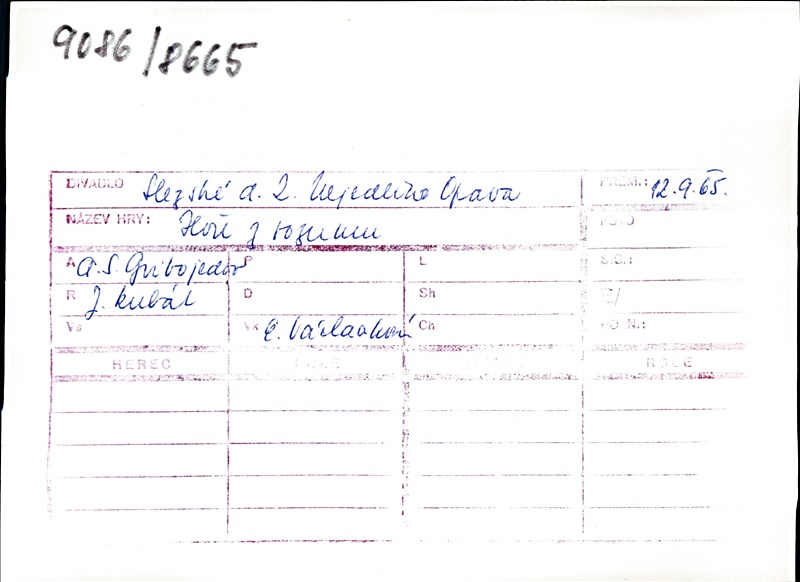 9086/8665
DIVADLO Slezské d. Z. Nejedlého Opava PREM.: 12.9.65.
NÁZEV HRY: Hoře z rozumu FOTO
A A.S. Gribojedov P L S.G.:
R J. Kubát D Sh
Vs Vk E. Václavková Ch PO N.:
HEREC ROLE ROLE